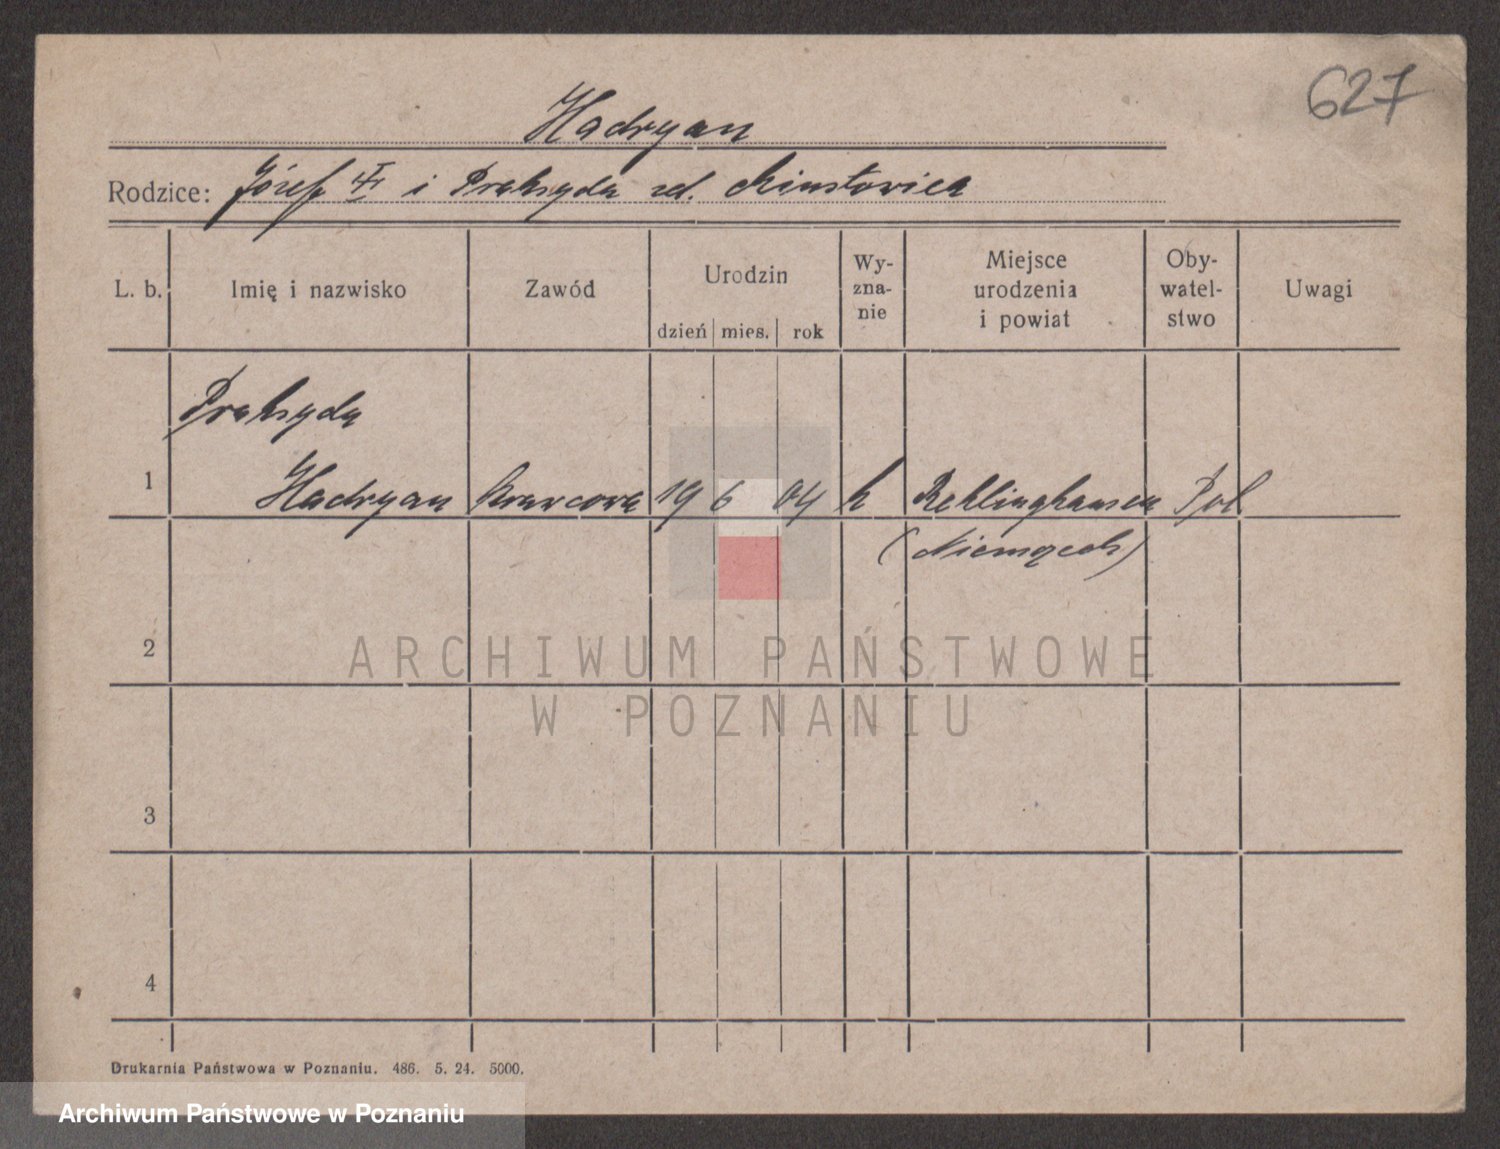 627
Hadryan
Rodzice: Józef i Praksyda zd.
L. b. Imię i nazwisko Zawód Urodzin Wy-zna-nie Miejsce urodzenia i powiat Oby-watel-stwo Uwagi
dzień mies. rok
Praksyda
1 Hadryan krawcowa 19 6 04 k Recklinghausen Pol
(Niemczech)
2
ARCHIWUM PAŃSTWOWE
W POZNANIU
3
4
Drukarnia Państwowa w Poznaniu. 486. 5. 24. 5000.
Archiwum Państwowe w Poznaniu